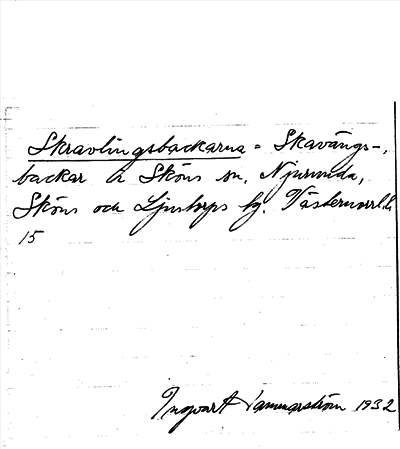 Skravlingsbackarna = Skavångs-,
backar i Sköns sn, Njurunda,
Sköns och Ljustorps tg. Västernorrl. l.
15
Ingvart Hammarström 1932